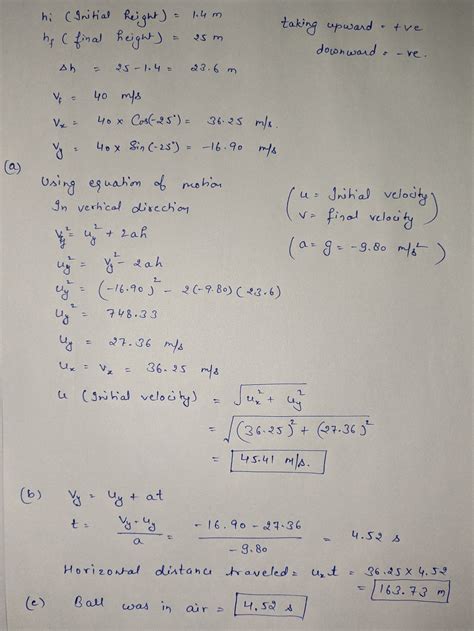 hi (Initial height) = 1.4 m
hf (final height) = 25 m
taking upward = +ve
downward = -ve.
Δh = 25 - 1.4 = 23.6 m
Vf = 40 m/s
Vx = 40 x Cos(-25°) = 36.25 m/s.
Vy = 40 x Sin(-25°) = -16.90 m/s
(a)
Using equation of motion
In vertical direction
(u = Initial velocity
v = final velocity)
(a = g = -9.80 m/s²)
Vy² = uy² + 2ah
uy² = Vy² - 2ah
uy² = (-16.90)² - 2(-9.80)(23.6)
uy² = 748.33
uy = 27.36 m/s
ux = Vx = 36.25 m/s
u (Initial velocity) = √ux² + uy²
= √(36.25)² + (27.36)²
= 45.41 m/s.
(b) Vy = uy + at
t = Vy - uy / a = -16.90 - 27.36 / -9.80 = 4.52 s
Horizontal distance traveled = uxt = 36.25 x 4.52
= 163.73 m
(c) Ball was in air = 4.52 s